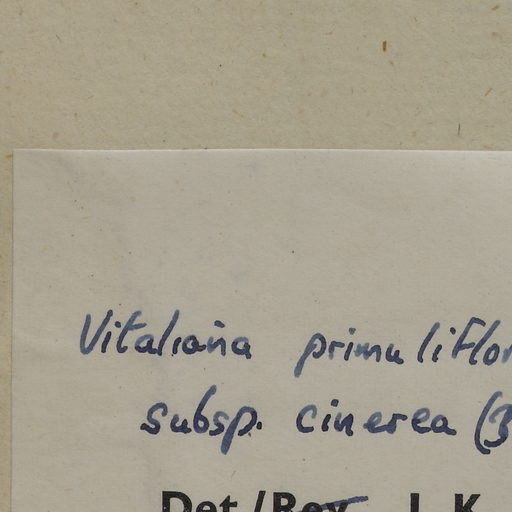 Vitaliana primuliflor
subsp. cinerea (
Det./Rev. J. K.